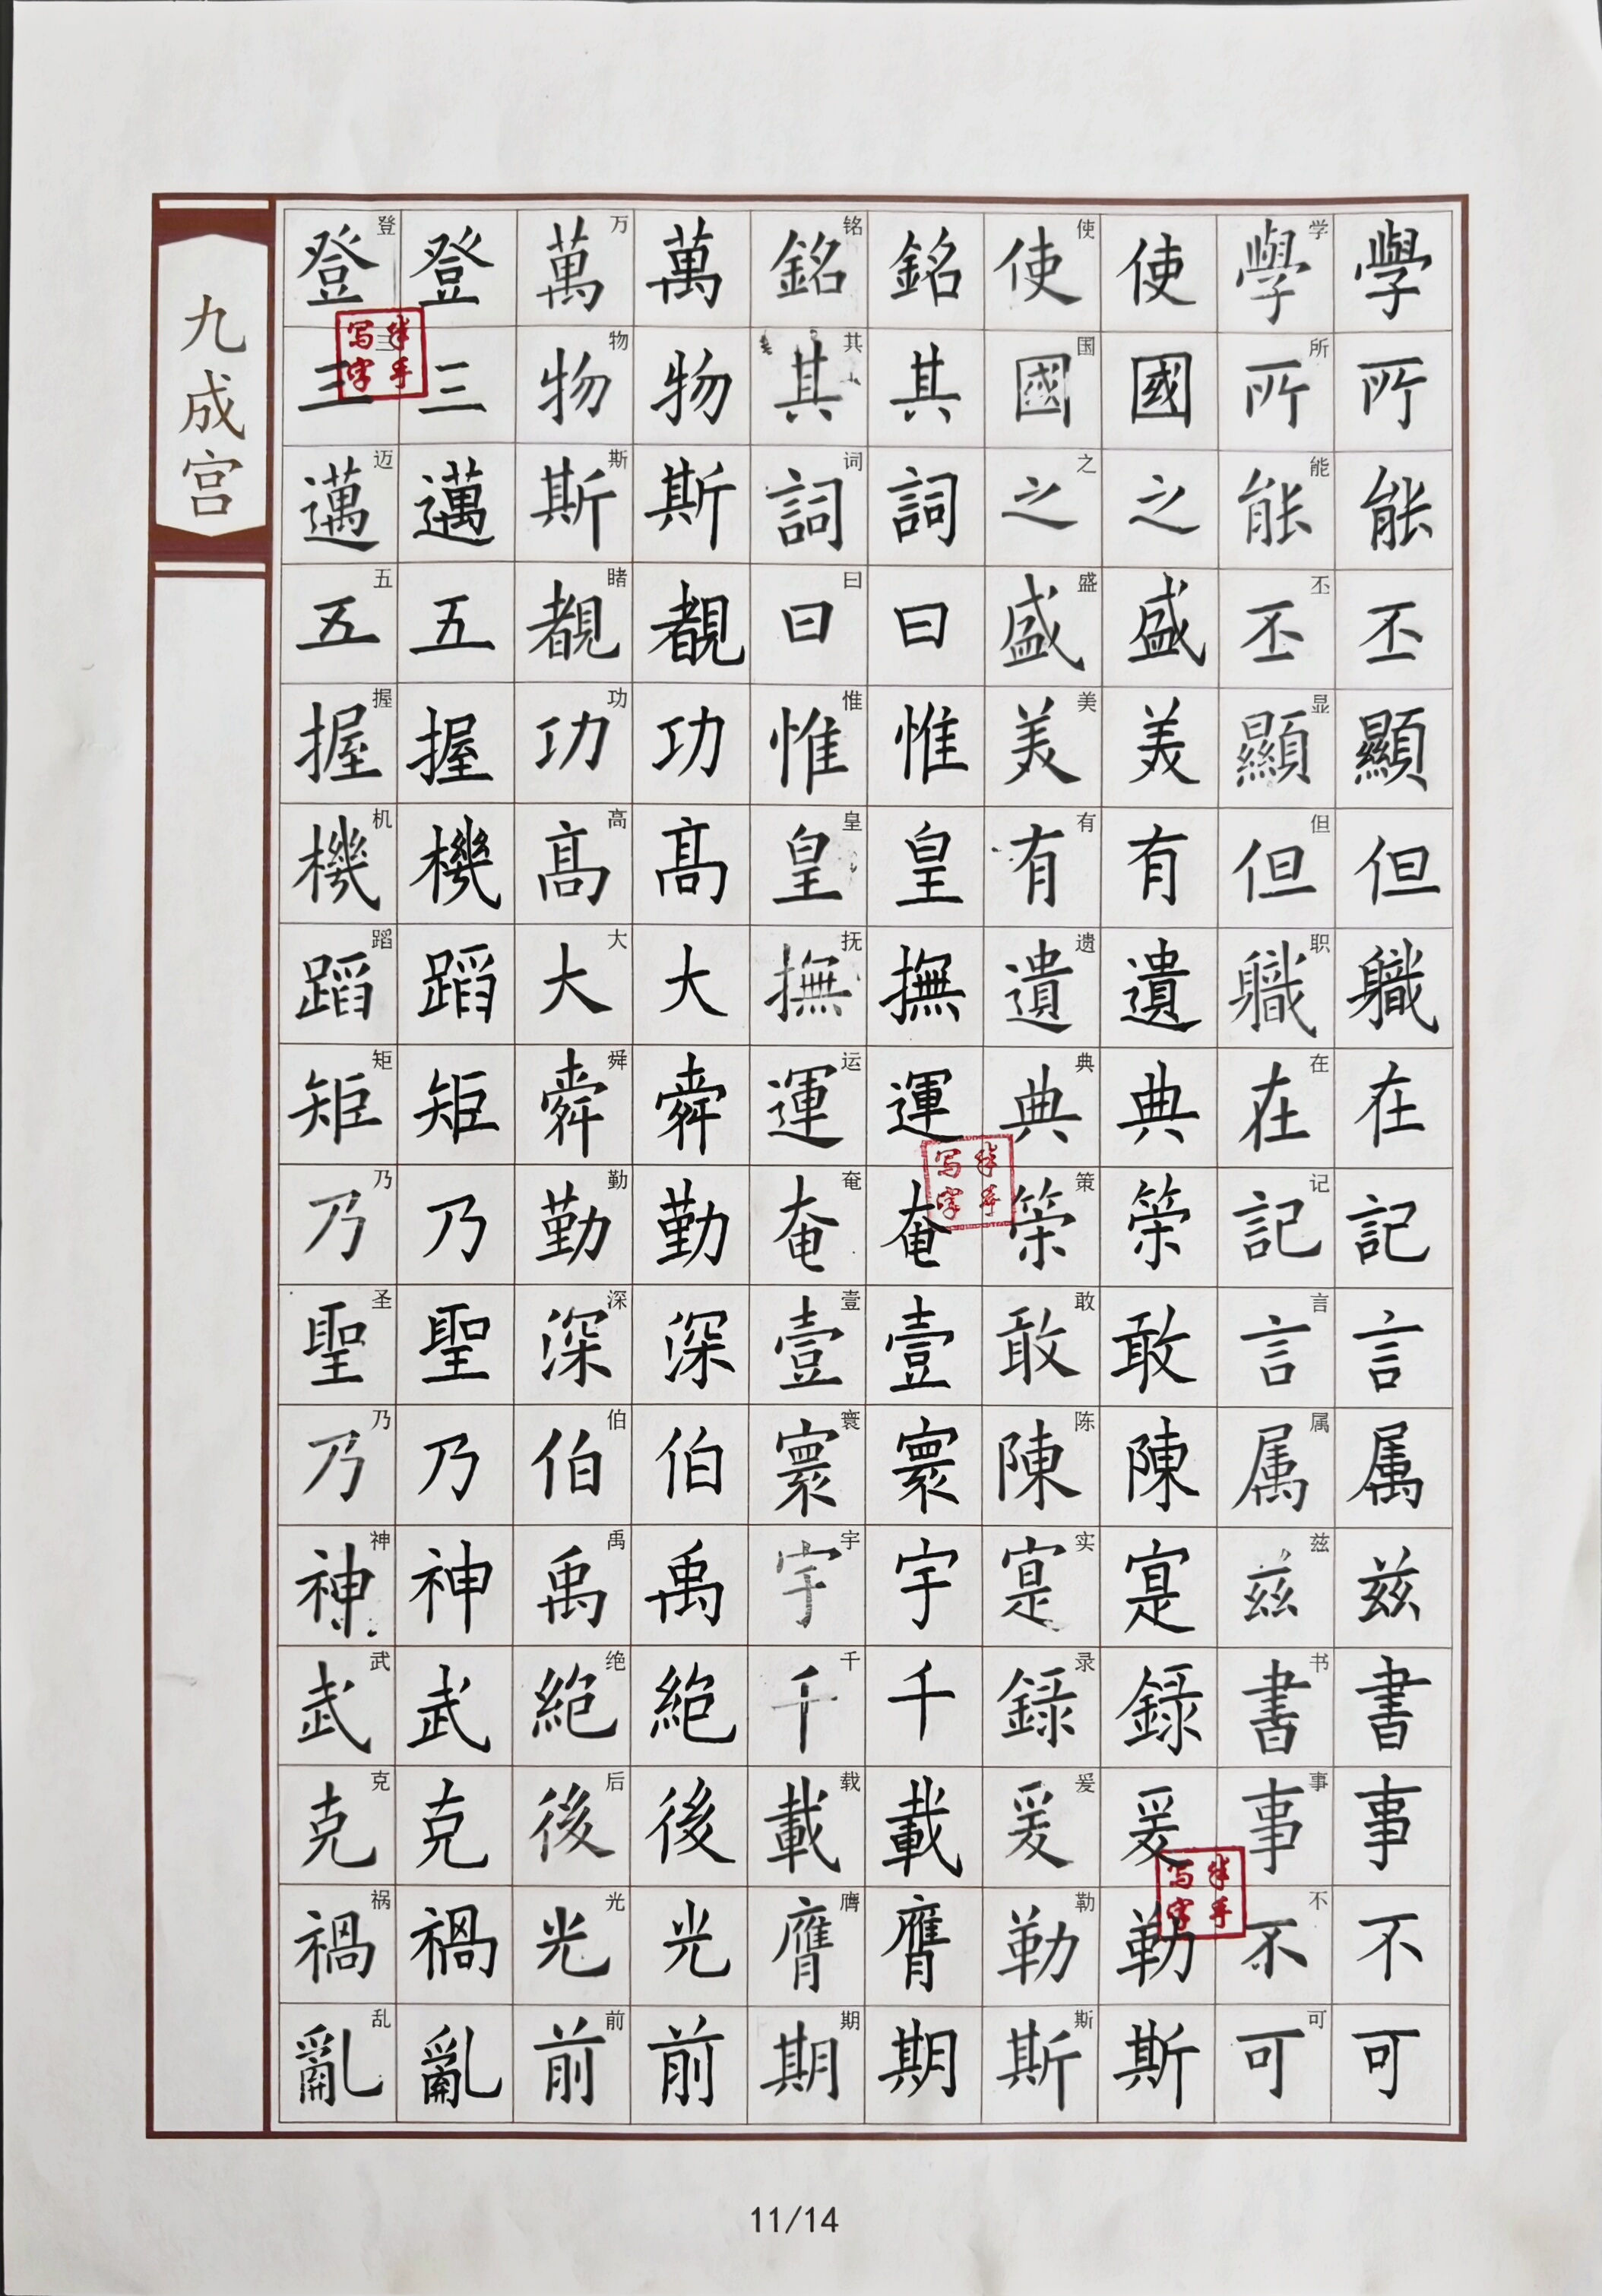 學所能丕顯但職在記言属兹書事不可
學所能丕顯但職在記言属兹書事不可
学所能丕显但职在记言属兹书事不可
使國之盛美有遺典策敢陳寔録爰勒斯
使國之盛美有遺典策敢陳寔録爰勒斯
使国之盛美有遗典策敢陈实录爰勒斯
銘其詞曰惟皇撫運奄壹寰宇千載膺期
銘其詞曰惟皇撫運奄壹寰宇千載膺期
铭其词曰惟皇抚运奄壹寰宇千载膺期
萬物斯覩功髙大舜勤深伯禹絶後光前
萬物斯覩功髙大舜勤深伯禹絶後光前
万物斯睹功高大舜勤深伯禹绝后光前
登三邁五握機蹈矩乃聖乃神武克禍亂
登三邁五握機蹈矩乃聖乃神武克禍亂
登三迈五握机蹈矩乃圣乃神武克祸乱
九成宫
写字
写字
写字
11/14